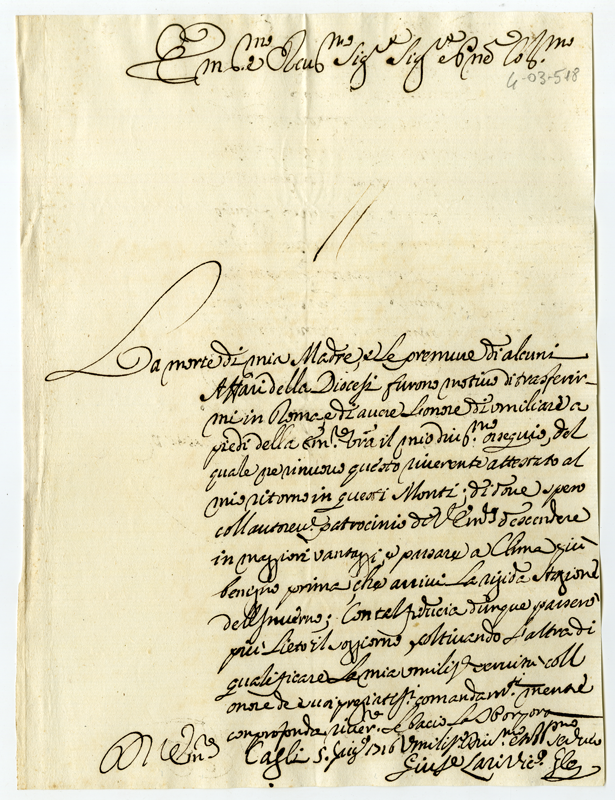 Em.mo e Reu.mo Sig.re Sig.re e Pne Col.mo
4-03-518
La morte di mia Madre, e le premure di alcuni
Affari della Diocesi furono motivo di trasferir-
mi in Roma e di auere l'onore di umiliare a
piedi della Em.za Vra il mio diuo.mo ossequio, del
quale ne rinuouo questo riuerente attestato al
mio ritorno in questi Monti; di doue spero
coll autoreu.e patrocinio de V. Em.za descendere
in maggiori vantaggi, e passare a Clima più
benigno prima, che arriui la rigida Stagione
dell'Inuerno; Con tal fiducia dunque passerò
più lieto il soggiorno, coltiuando l'altra di
qualificare la mia umiliss. seruitù coll
onore de suoi pregiatiss. comandam.ti mentre
con profonda riuer.za le bacio la Porpora
Di V. Em.za
Cagli 5. Giug. 1716 Umiliss. Diuo.mo Seruo
Gius.e Lari